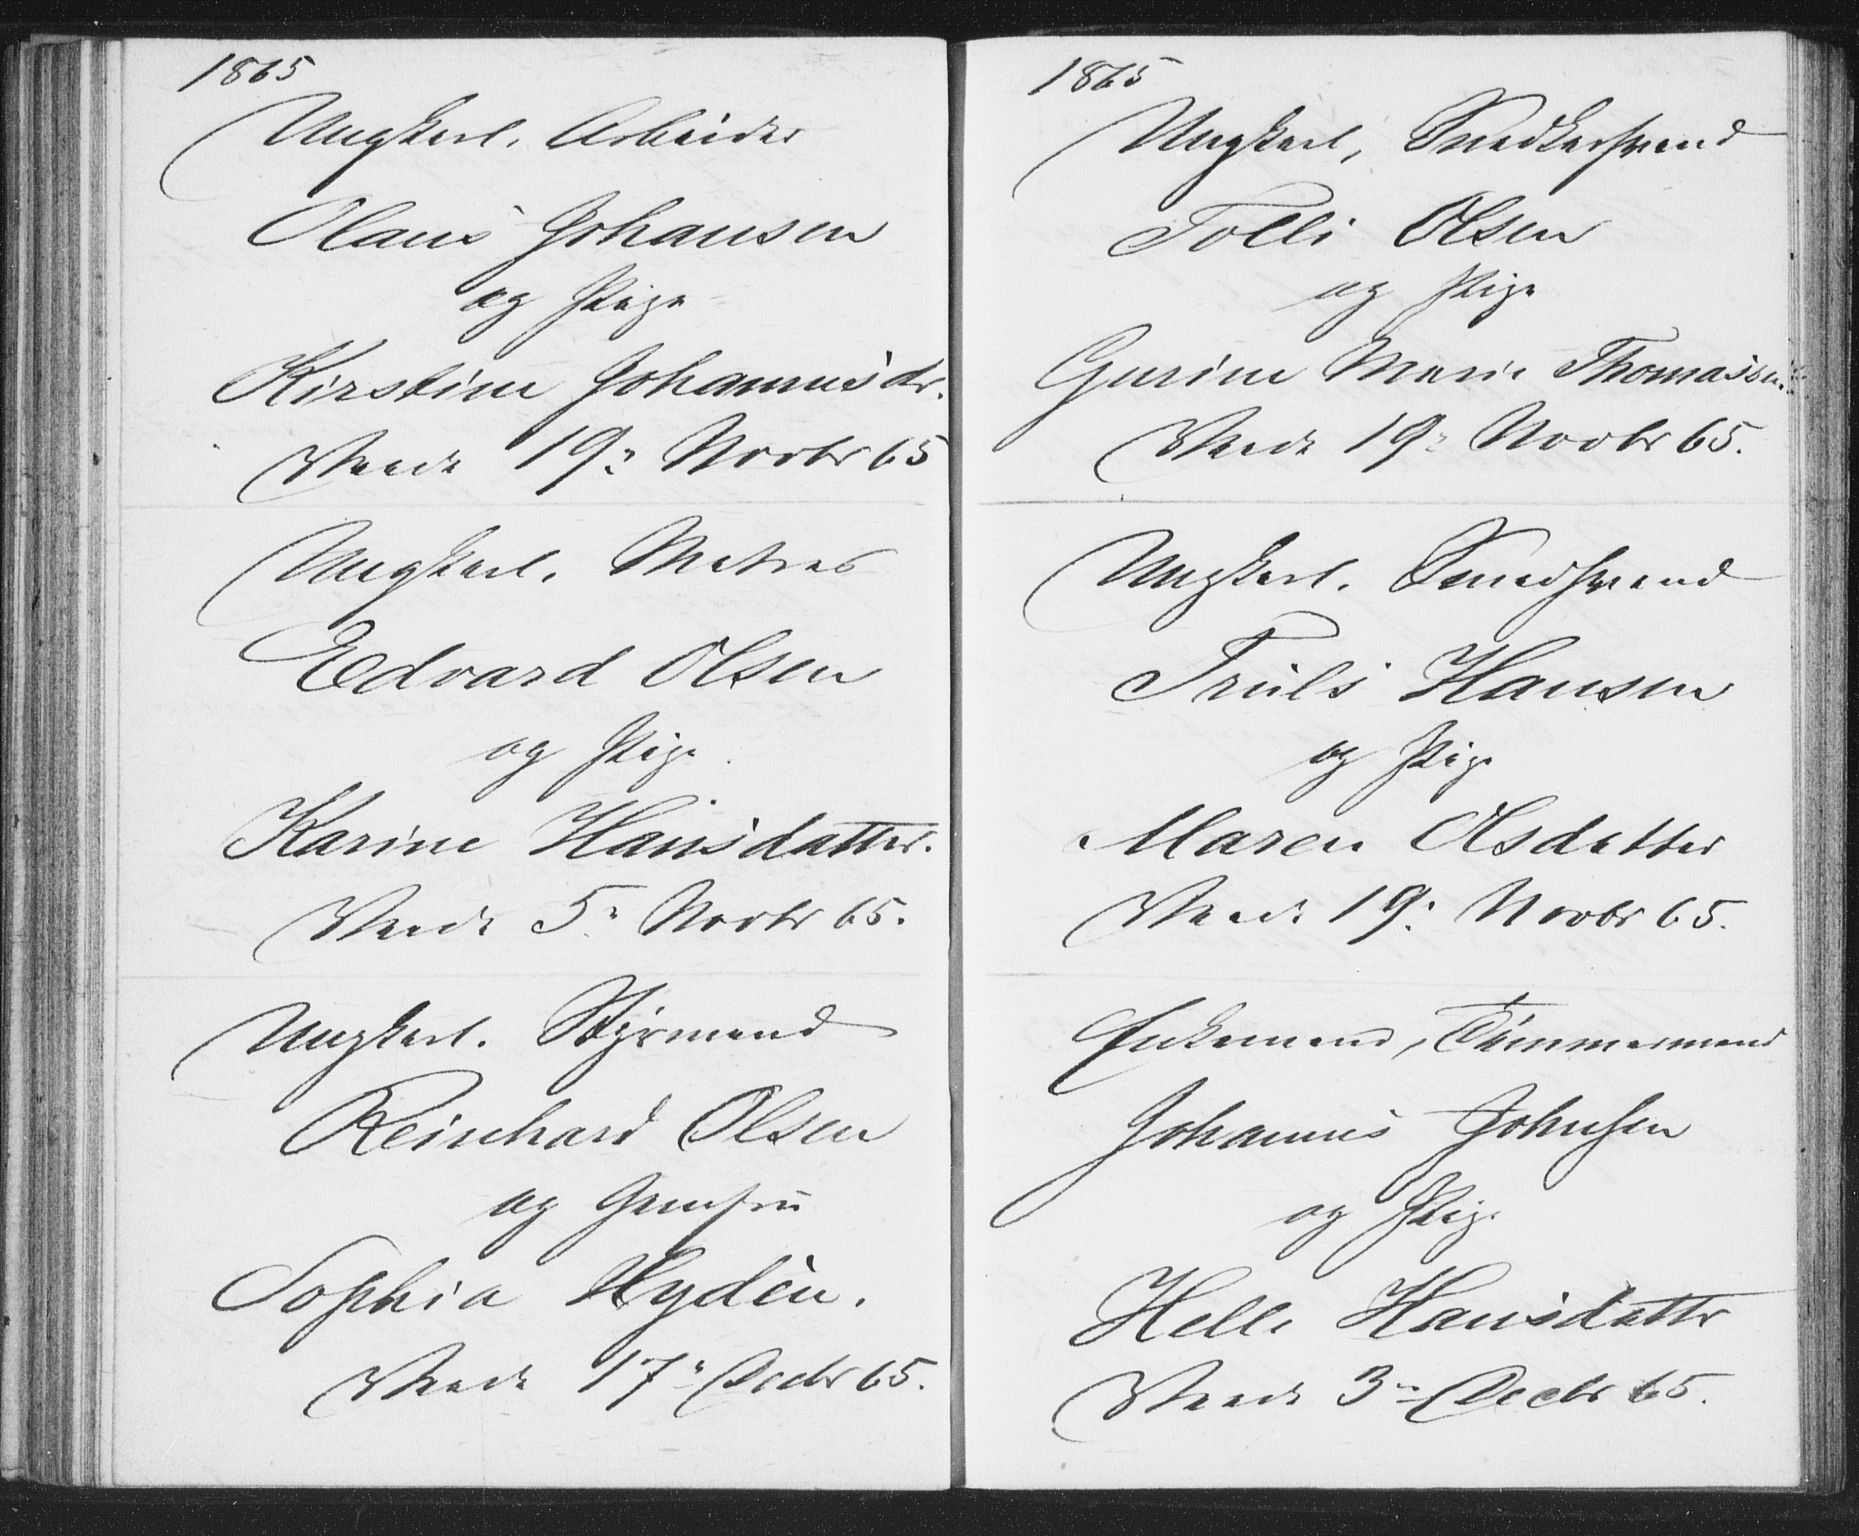 1865
Ungkarl. Arbeider
Olaus Johansen
og Pige
Kirstine Johannesdr.
19: Novbr 65
Ungkarl. Matros
Edvard Olsen
og Pige
Karine Hansdatter.
5: Novbr 65.
Ungkarl. Styrmand
Reinhard Olsen
og Jomfru
Sophia Hydèn.
17: Decbr 65.
1865
Ungkarl, Snedkersvend
Tolli Olsen
og Pige
Gurine Marie Thomassen.
19: Novbr 65.
Ungkarl. Smedsvend
Truls Hansen
og Pige
Maren Olsdatter
19: Novbr 65.
Enkemand, Tømmermand
Johannes Johnsen
og Pige
Helle Hansdatter
3: Decbr 65.